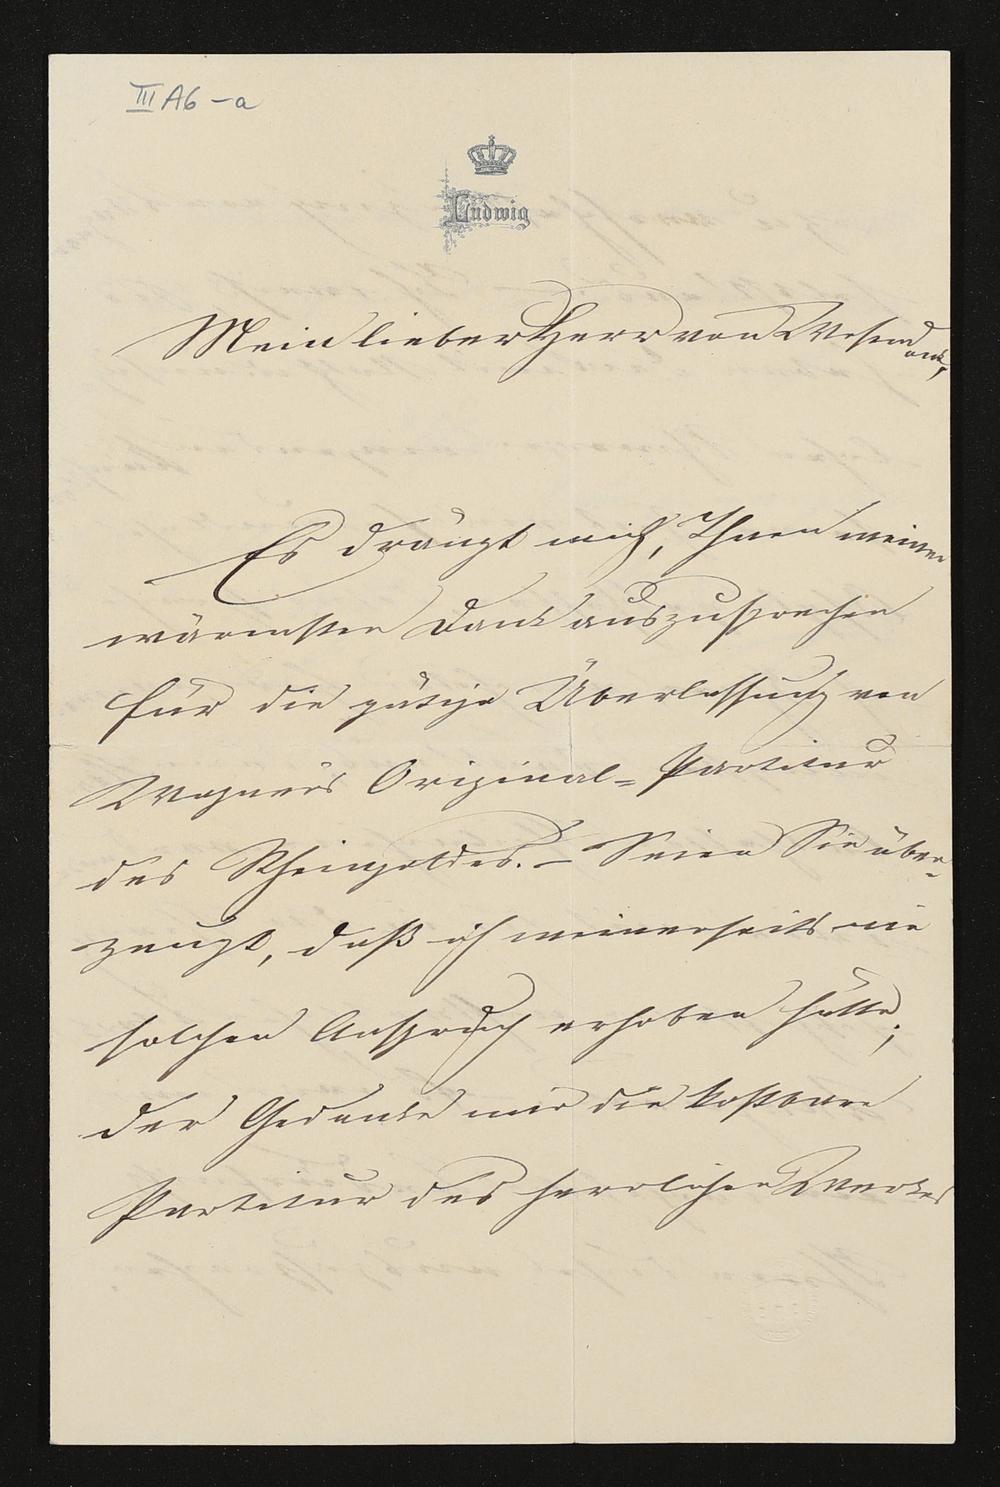 III A6 – a
Ludwig
Mein lieber Herr von Wesend
onk,
Es drängt mich, Ihnen meinen
wärmsten Dank auszusprechen
für die gütige Überlassung von
Wagners Original-Partitur
des Rheingoldes. – Seien Sie über-
zeugt, daß ich meinerseits nie
solchen Anspruch erhoben hätte;
der Gedanke mir die kostbare
Partitur des herrlichen Werkes